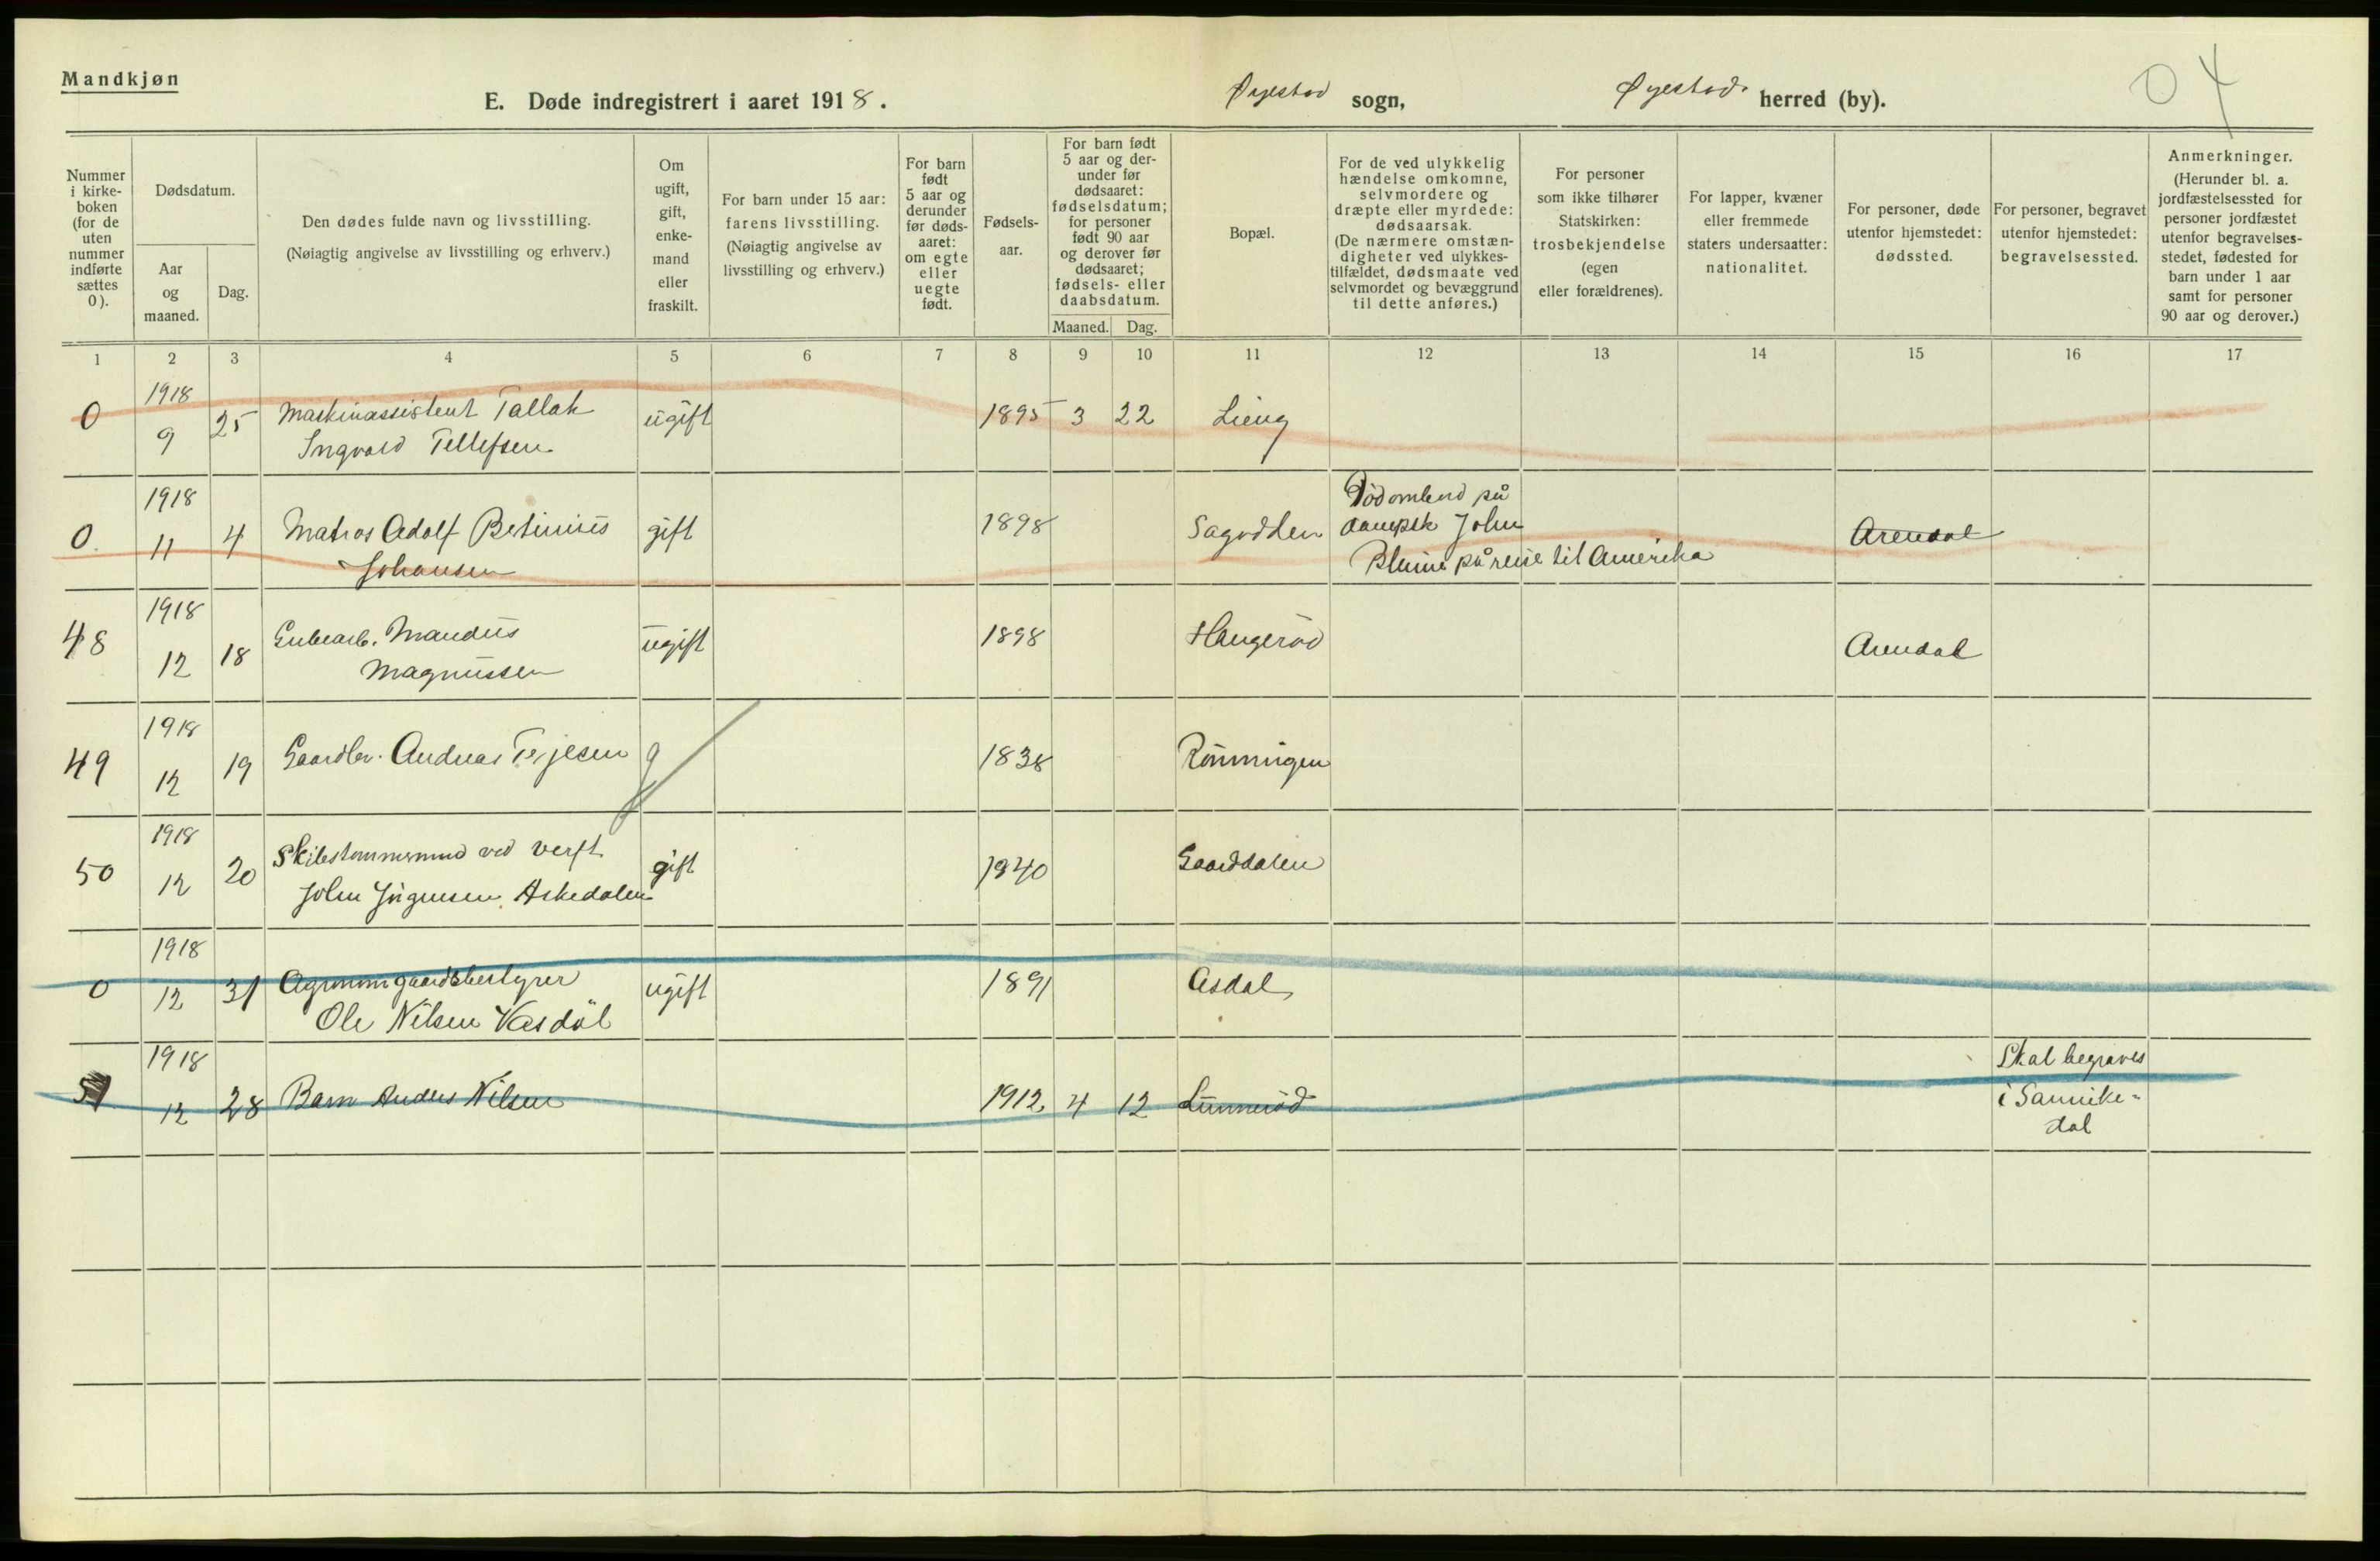 Mandkjøn
E. Døde indregistrert i aaret 1918.
Øyestad sogn,
Øyestad herred (by).
04
Nummer i kirke-boken (for de uten nummer indførte sættes 0).
Dødsdatum.
Aar og maaned.
Dag.
Den dødes fulde navn og livsstilling.
(Nøiagtig angivelse av livsstilling og erhverv.)
Om ugift, gift, enke-mand eller fraskilt.
For barn under 15 aar: farens livsstilling.
(Nøiagtig angivelse av livsstilling og erhverv.)
For barn født 5 aar og derunder før døds-aaret: om egte eller uegte født.
Fødsels-aar.
For barn født 5 aar og der-under før dødsaaret: fødselsdatum; for personer født 90 aar og derover før dødsaaret; fødsels- eller daabsdatum.
Maaned. Dag.
Bopæl.
For de ved ulykkelig hændelse omkomne, selvmordere og dræpte eller myrdede: dødsaarsak.
(De nærmere omstæn-digheter ved ulykkes-tilfældet, dødsmaate ved selvmordet og bevæggrund til dette anføres.)
For personer som ikke tilhører Statskirken: trosbekjendelse (egen eller forældrenes).
For lapper, kvæner eller fremmede staters undersaatter: nationalitet.
For personer, døde utenfor hjemstedet: dødssted.
For personer, begravet utenfor hjemstedet: begravelsessted.
Anmerkninger.
(Herunder bl. a. jordfæstelsessted for personer jordfæstet utenfor begravelses-stedet, fødested for barn under 1 aar samt for personer 90 aar og derover.)
1 2 3 4 5 6 7 8 9 10 11 12 13 14 15 16 17
0 1918 9 25 Maskinassistent Tallak
Ingvald Tellefsen ugift 1895 3 22 Lieng
0. 1918 11 4 Matros Adolf Betinius
Johansen gift 1898 Sagodden
Död ombord på
dampsk John
Blume på reise til Amerika
Arendal
48 1918 12 18 Grubearb. Mandius
Magnussen ugift 1898 Haugeröd Arendal
49 1918 12 19 Gaardbr. Andreas Terjesen g 1838 Rönningen
50 1918 12 20 Skibstømmermand ved verft
John Jörgensen, Askedalen gift 1840 Gaarddalen
0 1918 12 31 gaardsbestyrer
Ole Nilsen Vasdöl ugift 1891 Asdal
51 1918 12 28 Barn Anders Nilsen 1912 4 12 Lunneröd
Skal begraves
i Sannike-
dal